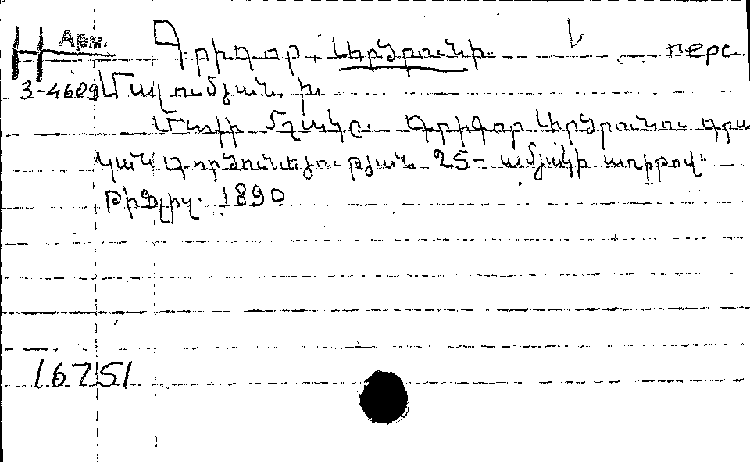 Арм. Գրիգոր Արծրունի. перс
3-4689 Մալումյան Խ.
Մտքի մշակը. Գրիգոր Արծրունու գրա
կան գործունեության 25-ամյակի առթիվ.
Թիֆլիս. 1890
16751